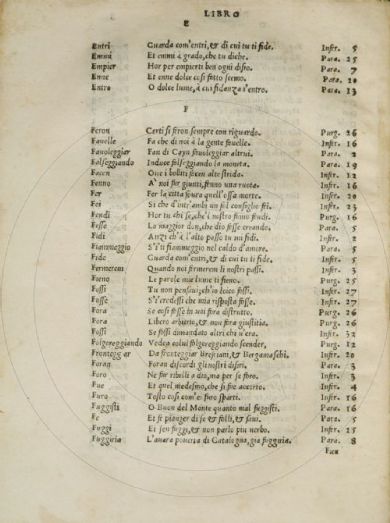 LIBRO
E
Entri Guarda com'entri, & di cui tu ti fide. Infer. 5
Enmi Et enmi à grado, che tu diche. Para. 25
Empier Hor per empierti ben ogni disio. Para. 7
Enne Et enne dolce così fatto scemo. Para. 20
Entro O dolce lume, à cui fidanza i'entro. Para. 13
F
Feron Certi si feron sempre con riguardo. Purg. 26
Favelle Fa che di noi à la gente favelle. Infer. 16
Favoleggiar Fan di Cayn favoleggiar altrui. Para. 2
Falseggiando Induce falseggiando la moneta. Para. 19
Facen Que i bolliti facen alte strida. Infer. 12
Fenno A' noi fur giunti, fenno una ruota. Infer. 16
Fer Fer la città sovra quell'ossa morte. Infer. 20
Fei Si che d'intr'ambi un sol consiglio fei. Infer. 23
Fendi Hor tu chi se, che'l nostro fumo fendi. Purg. 16
Fesse Lo maggior don, che dio fesse creando. Para. 5
Fidi Anzi ch'à l'alto passo tu mi fidi. Infer. 2
Fiammeggio S'i ti fiammeggio nel caldo d'amore. Para. 5
Fide Guarda com'entri, & di cui tu ti fide. Infer. 5
Fermeremi Quando noi fermerem li nostri passi. Infer. 3
Fieno Le parole mie fieno ti fieno. Para.
Fossi Tu non pensavi, ch'io loico fossi. Infer. 27
Fosse S'i credessi che mia risposta fosse. Infer. 27
Fora Se così fosse in voi fora distrutto. Purg. 16
Fora Libero arbitrio, & non fora giustitia. Purg. 16
Fossi Se fossi dimandato altri chi v'era. Infer. 32
Folgereggiando Vedea colui folgereggiando scender. Purg. 12
Fronteggiar Da fronteggiar Bresciani, & Bergamaschi. Infer. 20
Foran Foran discordi gli nostri disiri. Para. 3
Foro Ne fur ribelli a dio, ma per se foro. Infer. 3
Fue Et quel medesmo, che si fue accorto. Infer.
Furo Tosto così com'ei furo sparti. Para. 16
Fuggisti O Buon del Monte quanto mal fuggisti. Para. 16
Fe Et fe pianger di se & folli, & savi. Para. 5
Fuggi Ei sen fuggi, & non parlò piu verbo. Infer. 25
Fuggiria L'avara povertà di Catalogna, gia fuggiria. Para. 8